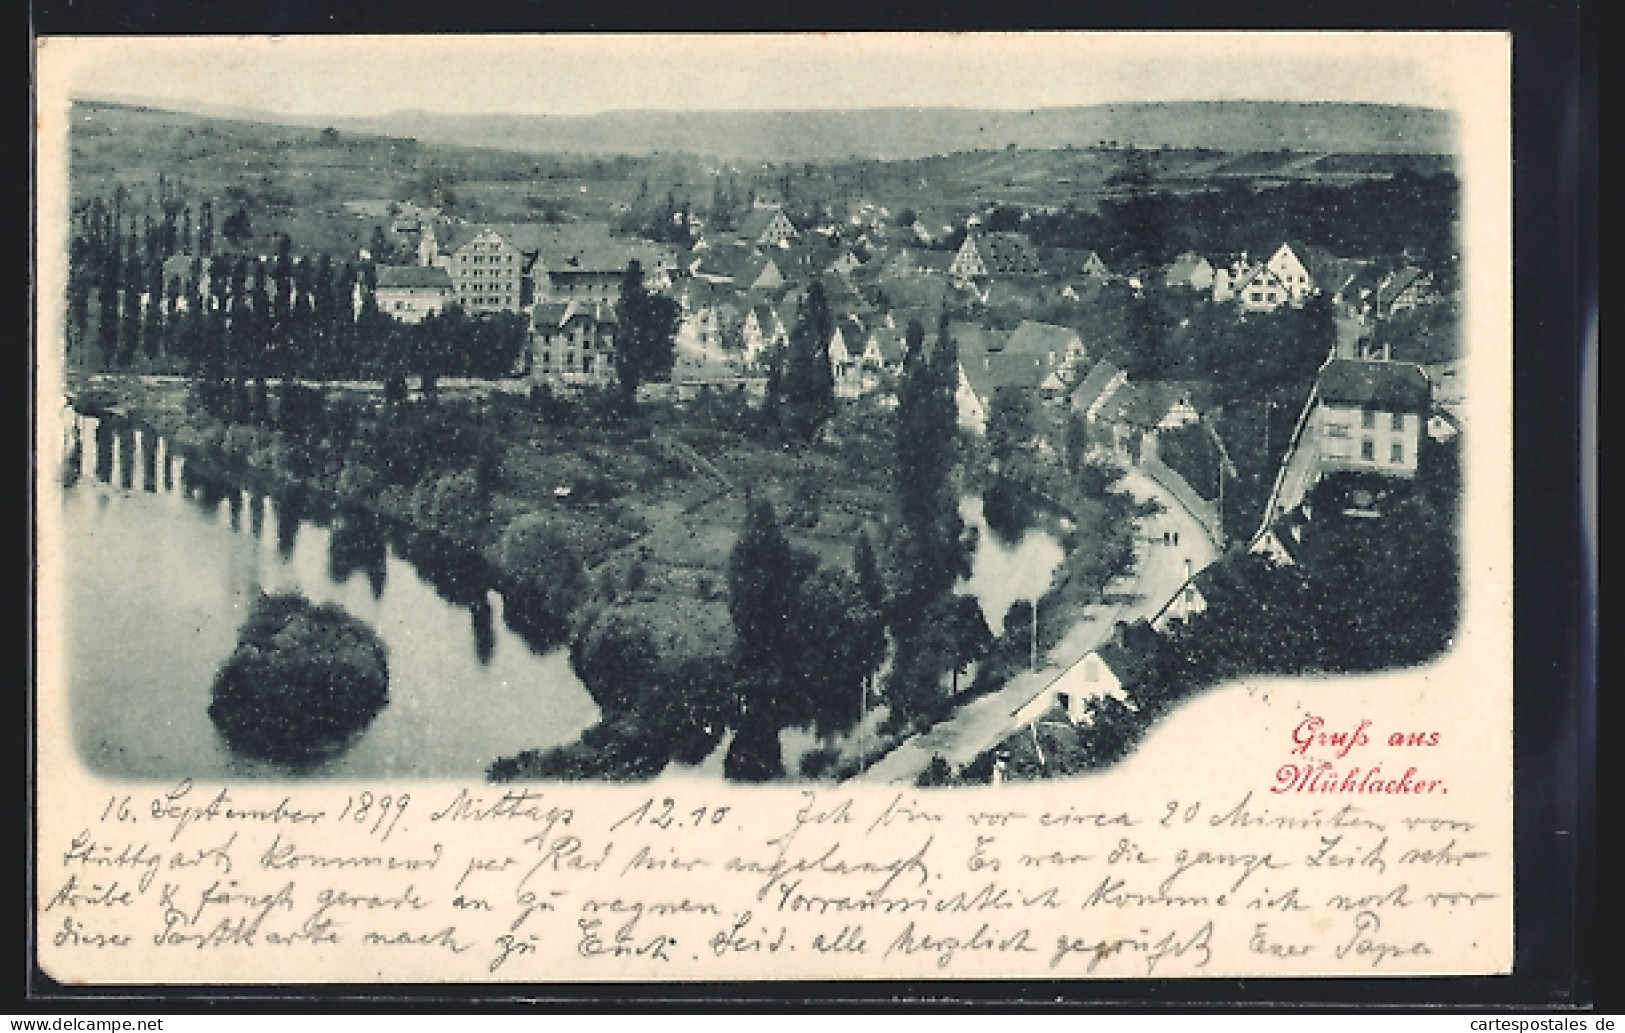 Gruß aus
Mühlacker.
16. September 1899. Mittags 12.10. Ich bin vor circa 20 Minuten von
Stuttgart kommend per Rad hier angelangt. Es war die ganze Zeit sehr
trübe & fängt gerade an zu regnen. Vorraussichtlich komme ich noch vor
dieser Postkarte nach zu Euch. Seid alle herzlich gegrüßt Euer Papa.
www.oldthing.com
cartespostales de